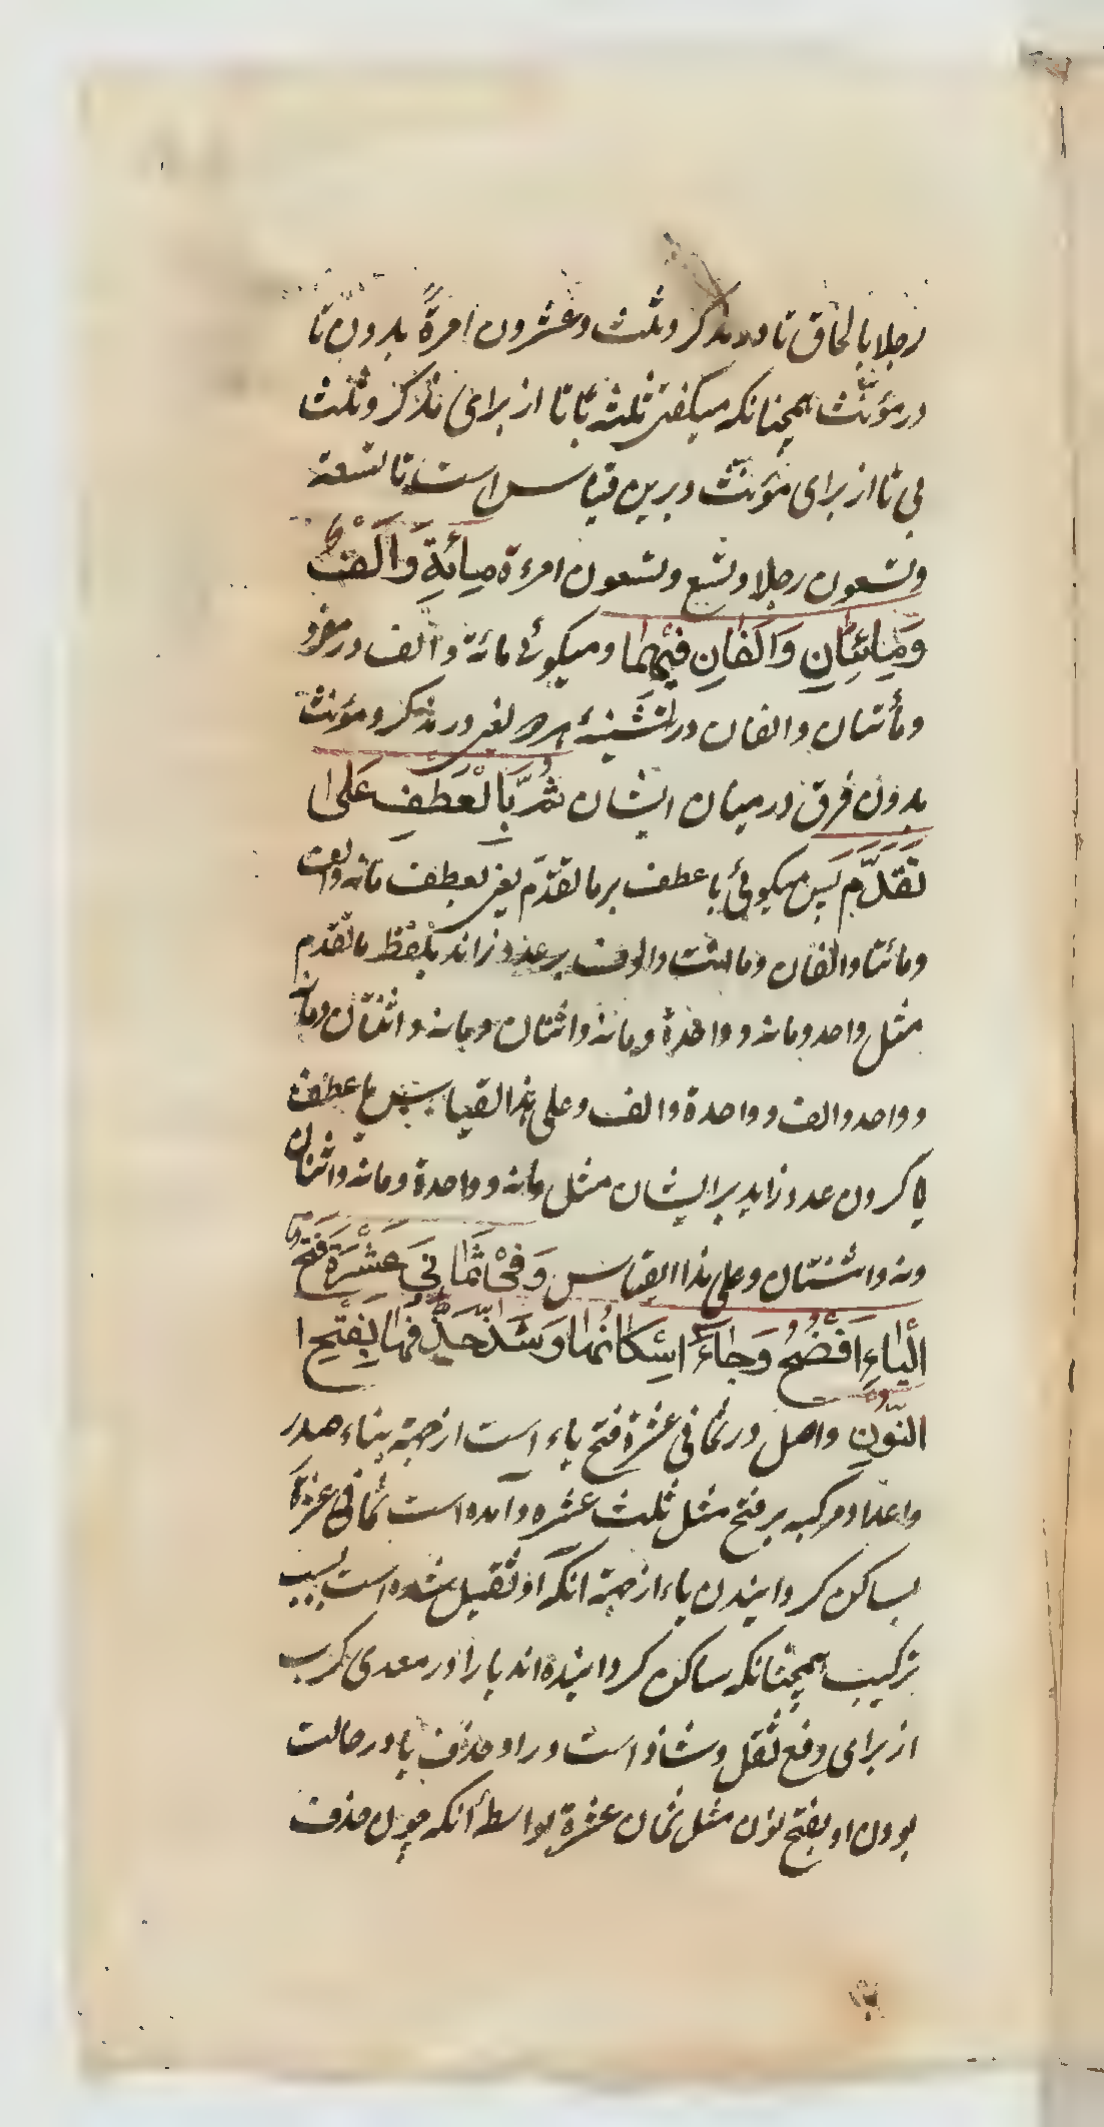 رجلا بالحاق تا در مذکر و ثلث و عشرون امرةً بدون تا
در مؤنّث همچنانکه میکفتی ثلثه با تا از برای مذکر و ثلث
بی تا از برای مؤنّث و برین قیاس است تا تسعة
و تسعون رجلا و تسع و تسعون امرءة مِائَةِ وَاَلْفٌ
وَمِائَتَانِ وَاَلْفَانِ فِیْهِمَا و میکوئی مائة و الف در مفرد
و مأتتان و الفان در تثنیۀ هر دو یعنی در مذکر و مؤنث
بدون فرق در میان ایشان ثُمَّ بِالْعَطْفِ عَلٰی مَا
تَقَدَّمَ پس میکوئی با عطف بر ما تقدّم یعنی بعطف مائه و الف
و مائتا و الفان و والوف بر عدد زائد بلفظ ما تقدم
مثل واحد و مائه و واحدة و مائة و اثنان و مائه و اثنتان و مائه
و واحد و الف و واحدة و الف و علی هذا القیاس با عطف
یا کردن عدد زاید بر ایشان مثل مائه و واحدة و مائه و اثنان
ومئه و اثنتان و علی هذا القیاس وَفِیْ ثَمَانِیَ عَشْرَةَ فَتْحُ
الْیَاءِ اَفْصَحُ وَجَاءَ اِسْکَانُهَا وَشَذَّ حَذْفُهَا بِفَتْحِ
النّونِ و اصل در ثمانی عشرة فتح یاء است از جهة بناء صدر
و اعداد مرکبه بر فتح مثل ثلث عشره و آمده است ثمانی عشرة
بساکن کردانیدن یاء از جهة انکه او ثقیل شده است بسبب
ترکیب همچنانکه ساکن کردانیده اند یا را در معدی کرب
از برای دفع ثقل و شاذ است در او حذف یا در حالت
بودن او بفتح نون مثل ثمان عشرة بواسطۀ آنکه چون حذف